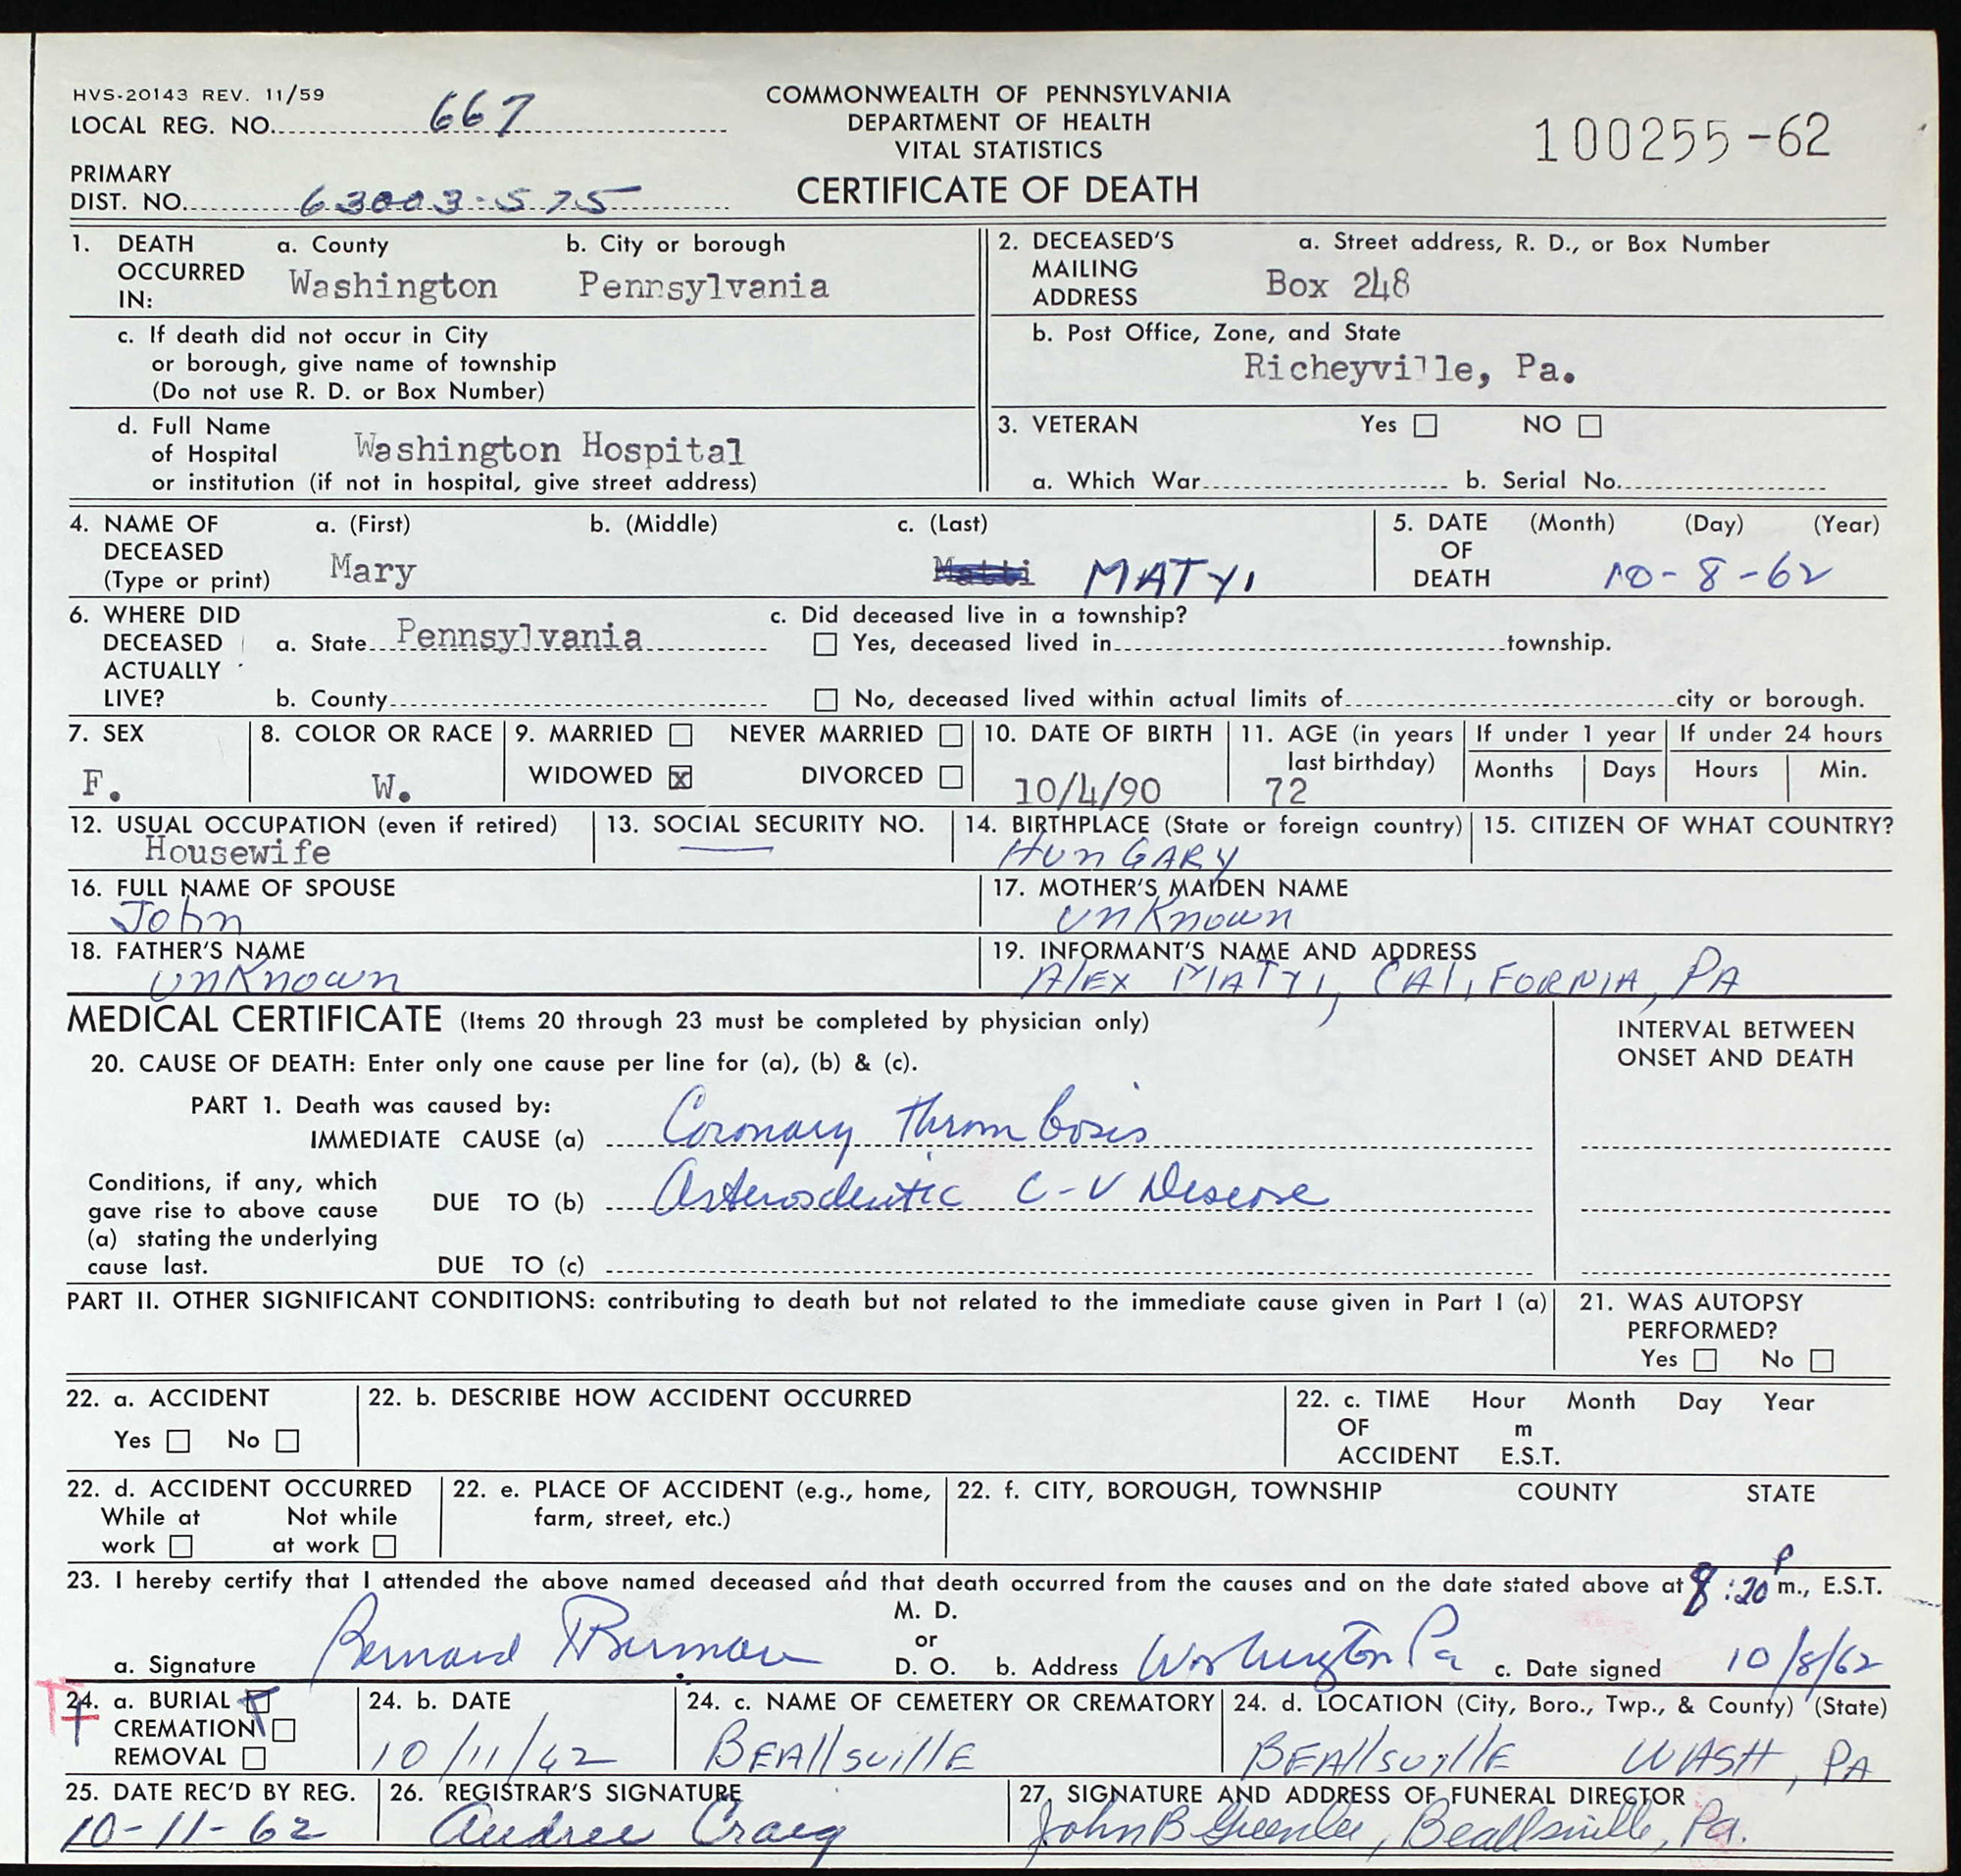 HVS-20143 REV. 11/59
LOCAL REG. NO. 667
COMMONWEALTH OF PENNSYLVANIA
DEPARTMENT OF HEALTH
VITAL STATISTICS
CERTIFICATE OF DEATH
100255-62
PRIMARY
DIST. NO. 63003-575
1. DEATH OCCURRED IN: a. County b. City or borough
Washington Pennsylvania
2. DECEASED'S MAILING ADDRESS a. Street address, R. D., or Box Number
Box 248
c. If death did not occur in City
or borough, give name of township
(Do not use R. D. or Box Number)
b. Post Office, Zone, and State
Richeyville, Pa.
d. Full Name
of Hospital Washington Hospital
or institution (if not in hospital, give street address)
3. VETERAN Yes NO
a. Which War b. Serial No.
4. NAME OF DECEASED (Type or print) a. (First) b. (Middle) c. (Last)
Mary Matti MATYI
5. DATE OF DEATH (Month) (Day) (Year)
10-8-62
6. WHERE DID DECEASED ACTUALLY LIVE?
a. State Pennsylvania
b. County
c. Did deceased live in a township?
Yes, deceased lived in township.
No, deceased lived within actual limits of city or borough.
7. SEX
F.
8. COLOR OR RACE
W.
9. MARRIED NEVER MARRIED
WIDOWED x DIVORCED
10. DATE OF BIRTH
10/4/90
11. AGE (in years last birthday)
72
If under 1 year If under 24 hours
Months Days Hours Min.
12. USUAL OCCUPATION (even if retired)
Housewife
13. SOCIAL SECURITY NO.
14. BIRTHPLACE (State or foreign country)
HUNGARY
15. CITIZEN OF WHAT COUNTRY?
16. FULL NAME OF SPOUSE
John
17. MOTHER'S MAIDEN NAME
UNKNOWN
18. FATHER'S NAME
UNKNOWN
19. INFORMANT'S NAME AND ADDRESS
AlEX MATYI, CALIFORNIA, PA
MEDICAL CERTIFICATE (Items 20 through 23 must be completed by physician only)
INTERVAL BETWEEN
ONSET AND DEATH
20. CAUSE OF DEATH: Enter only one cause per line for (a), (b) & (c).
PART 1. Death was caused by:
IMMEDIATE CAUSE (a) Coronary Thrombosis
Conditions, if any, which
gave rise to above cause
(a) stating the underlying
cause last.
DUE TO (b) Arteriosclerotic C-V Disease
DUE TO (c)
PART II. OTHER SIGNIFICANT CONDITIONS: contributing to death but not related to the immediate cause given in Part I (a)
21. WAS AUTOPSY
PERFORMED?
Yes No
22. a. ACCIDENT
Yes No
22. b. DESCRIBE HOW ACCIDENT OCCURRED
22. c. TIME OF ACCIDENT Hour Month Day Year
m
E.S.T.
22. d. ACCIDENT OCCURRED
While at work Not while at work
22. e. PLACE OF ACCIDENT (e.g., home,
farm, street, etc.)
22. f. CITY, BOROUGH, TOWNSHIP COUNTY STATE
23. I hereby certify that I attended the above named deceased and that death occurred from the causes and on the date stated above at 8:20 P m., E.S.T.
a. Signature Bernard Berman M. D. or D. O. b. Address Washington Pa c. Date signed 10/8/62
24. a. BURIAL
CREMATION
REMOVAL
24. b. DATE
10/11/62
24. c. NAME OF CEMETERY OR CREMATORY
BEAllsvillE
24. d. LOCATION (City, Boro., Twp., & County) (State)
BEAllsvillE WASH, PA
25. DATE REC'D BY REG.
10-11-62
26. REGISTRAR'S SIGNATURE
Audree Craig
27. SIGNATURE AND ADDRESS OF FUNERAL DIRECTOR
John B Greenlee, Beallsville, Pa.